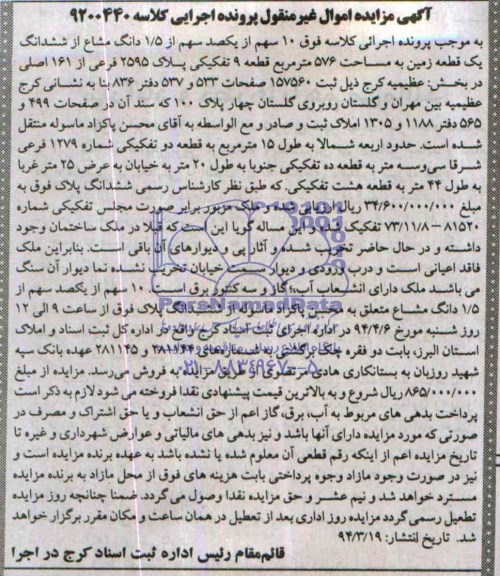 آگهی مزایده اموال غیرمنقول پرونده اجرایی کلاسه ۹۲۰۰۴۴۰
به موجب پرونده اجرائی کلاسه فوق ۱۰ سهم از یکصد سهم از ۱/۵ دانگ مشاع از ششدانگ
یک قطعه زمین به مساحت ۵۷۶ مترمربع قطعه ۹ تفکیکی پلاک ۲۵۹۵ فرعی از ۱۶۱ اصلی
در بخش: عظیمیه کرج ذیل ثبت ۱۵۷۵۶۰ صفحات ۵۳۳ و ۵۳۷ دفتر ۸۳۶ بنا به نشانی کرج
عظیمیه بین مهران و گلستان روبروی گلستان چهار پلاک ۱۰۰ که سند آن در صفحات ۴۹۹ و
۵۶۵ دفتر ۱۱۸۸ و ۱۳۰۵ املاک ثبت و صادر و مع الواسطه به آقای محسن پاکزاد ماسوله منتقل
شده است. حدود اربعه شمالا به طول ۱۵ مترمربع به قطعه دو تفکیکی شماره ۱۲۷۹ فرعی
شرقا سی‌وسه متر به قطعه ده تفکیکی جنوبا به طول ۲۰ متر به خیابان به عرض ۲۵ متر غربا
به طول ۴۴ متر به قطعه هشت تفکیکی. که طبق نظر کارشناس رسمی ششدانگ پلاک فوق به
مبلغ ۳۴/۶۰۰/۰۰۰/۰۰۰ ریال ارزیابی شد و ملک مزبور برابر صورت مجلس تفکیکی شماره
۸۱۵۲۰ – ۷۳/۱۱/۸ تفکیک شده و این مساله گویا این است که قبلا در ملک ساختمان وجود
داشته و در حال حاضر تخریب شده و آثار پی و دیوارهای آن باقی است. بنابراین ملک
فاقد اعیانی است و درب ورودی و دیوار سمت خیابان تخریب نشده نما دیوار آن سنگ
می باشد ملک دارای انشعاب آب، گاز و سه کنتور برق است. ۱۰ سهم از یکصد سهم از
۱/۵ دانگ مشاع متعلق به محسن پاکزاد ماسوله از ششدانگ پلاک فوق از ساعت ۹ الی ۱۲
روز شنبه مورخ ۹۴/۴/۶ در اداره اجرای ثبت اسناد کرج واقع در اداره کل ثبت اسناد و املاک
استان البرز، بابت دو فقره چک برگشتی به شماره‌های و ۲۸۱۱۴۵ عهده بانک سپه
شهید روزبان به بستانکاری هادی مرتضوی از طریق مزایده به فروش می‌رسد. مزایده از مبلغ
۸۶۵/۰۰۰/۰۰۰ ریال شروع و به بالاترین قیمت پیشنهادی نقدا فروخته می شود لازم به ذکر است
پرداخت بدهی های مربوط به آب، برق، گاز اعم از حق انشعاب و یا حق اشتراک و مصرف در
صورتی که مورد مزایده دارای آنها باشد و نیز بدهی های مالیاتی و عوارض شهرداری و غیره تا
تاریخ مزایده اعم از اینکه رقم قطعی آن معلوم شده یا نشده باشد به عهده برنده مزایده است و
نیز در صورت وجود مازاد وجوه پرداختی بابت هزینه های فوق از محل مازاد به برنده مزایده
مسترد خواهد شد و نیم عشر و حق مزایده نقدا وصول می گردد. ضمنا چنانچه روز مزایده
تعطیل رسمی گردد مزایده روز اداری بعد از تعطیل در همان ساعت و مکان مقرر برگزار خواهد
شد. تاریخ انتشار: ۹۴/۳/۱۹
قائم‌مقام رئیس اداره ثبت اسناد کرج در اجرا
ParsNamadData
۰۲۱-۸۸۳۴۹۶۷۰-۵